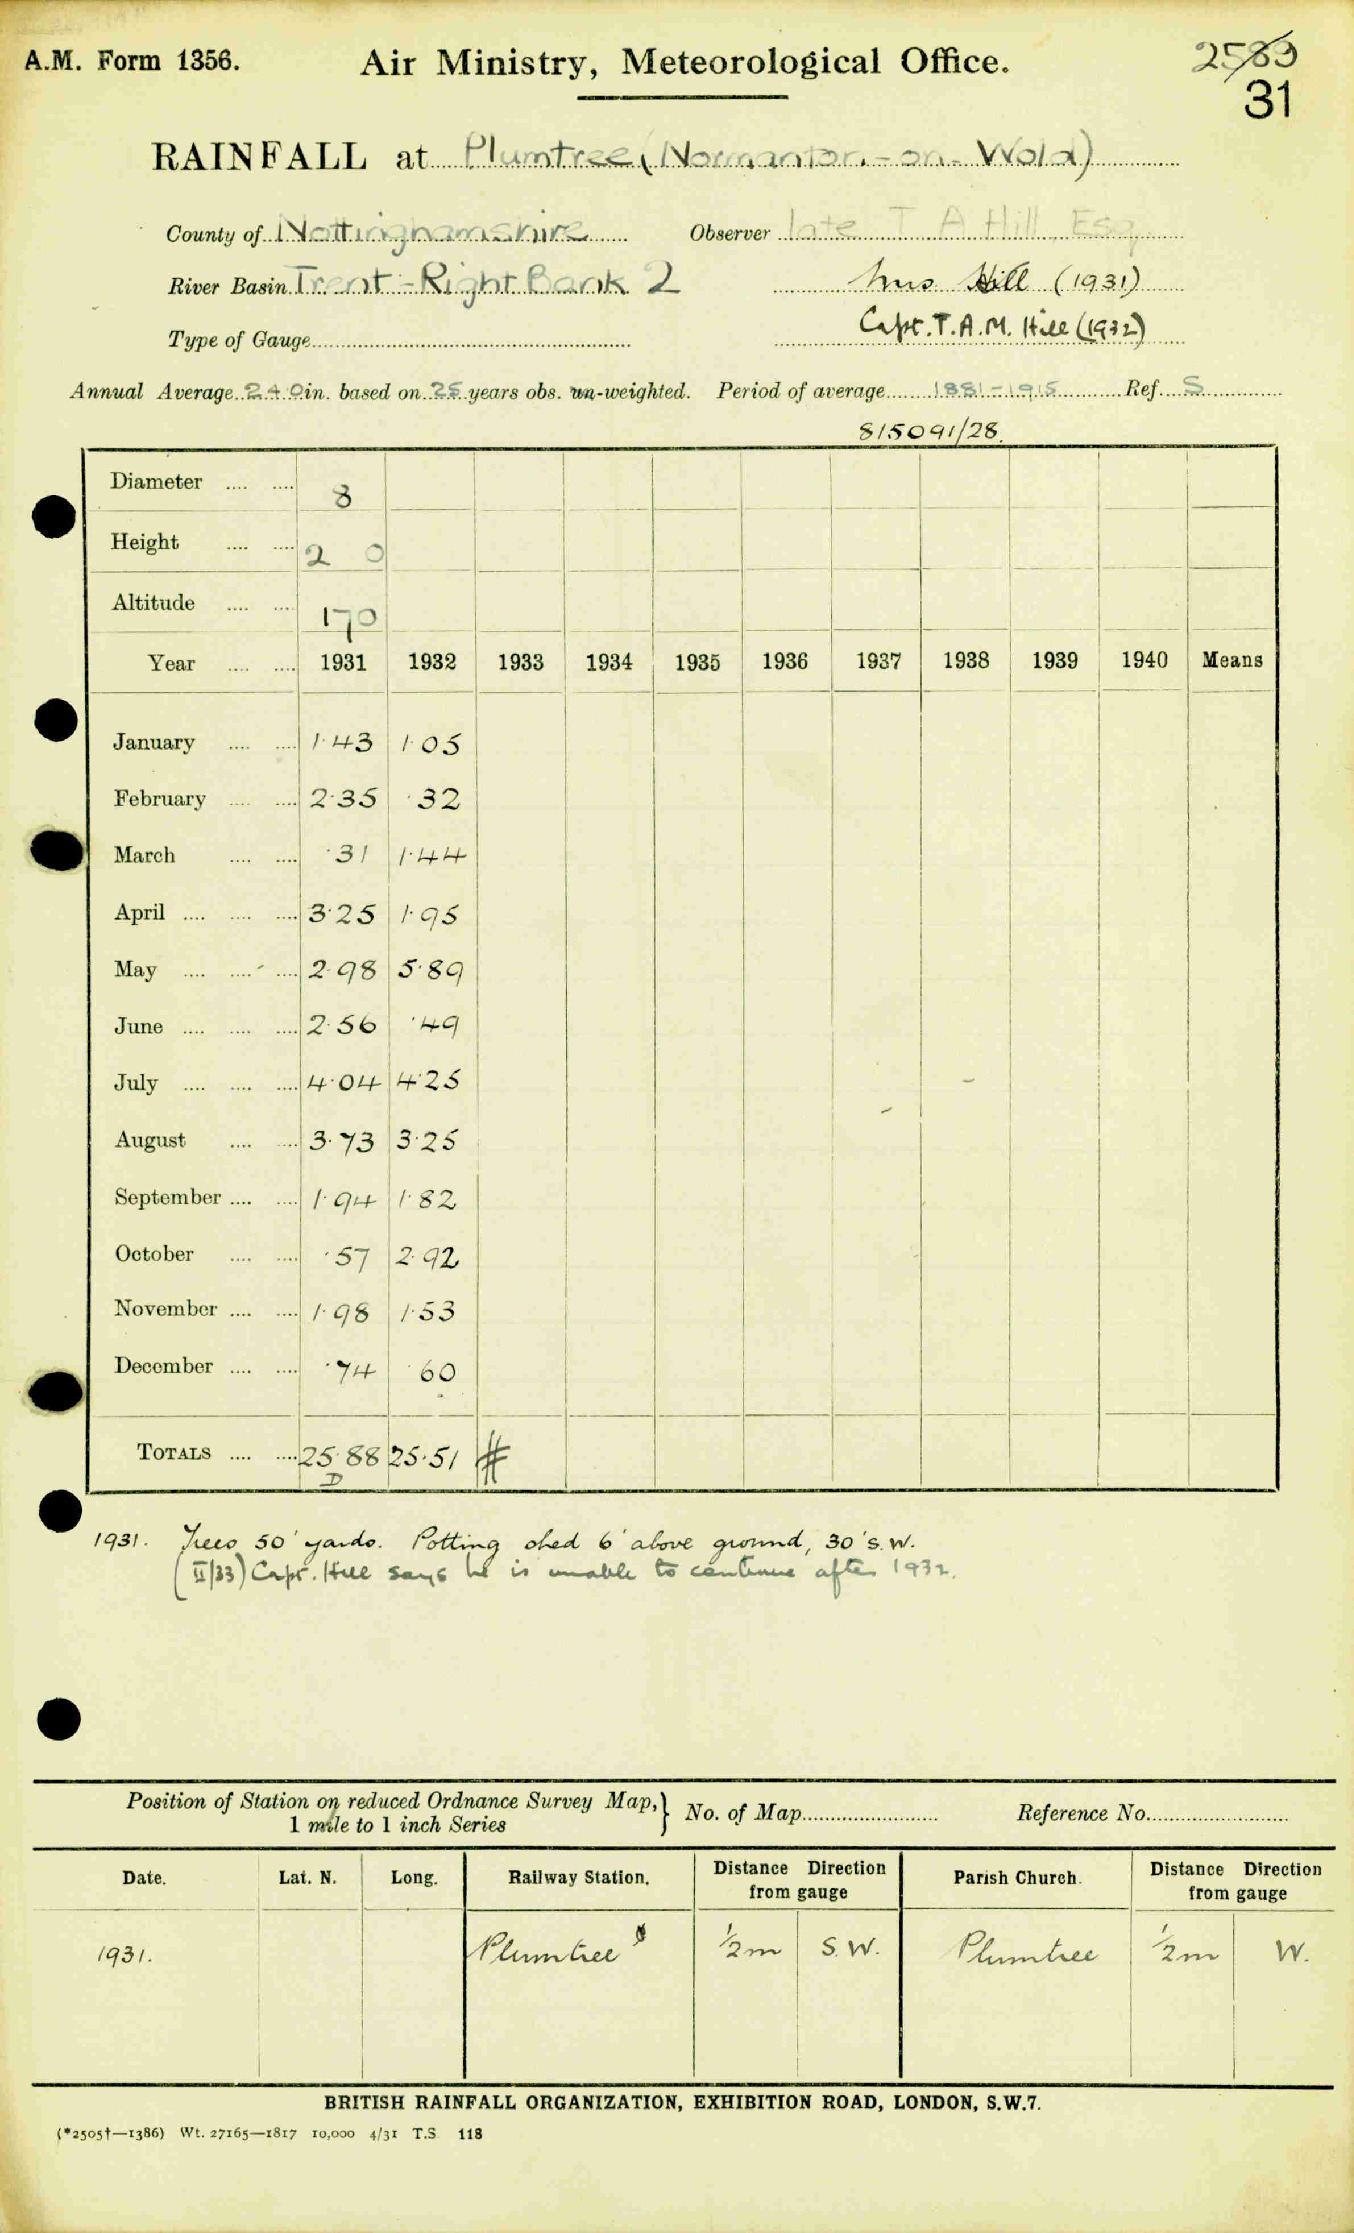 A.M. Form 1356. Air Ministry, Meteorological Office. 2583
31
RAINFALL at Plumtree (Normanton-on-Wold)
County of Nottinghamshire Observer late T A Hill, Esq.
River Basin Trent - Right Bank 2 Mrs Hill (1931)
Type of Gauge Capt. T.A.M. Hill (1932)
Annual Average 24.0 in. based on 25 years obs. un-weighted. Period of average 1881-1915 Ref. S
815091/28.
Diameter 8
Height 2 0
Altitude 170
Year 1931 1932 1933 1934 1935 1936 1937 1938 1939 1940 Means
January 1.43 1.05
February 2.35 .32
March .31 1.44
April 3.25 1.95
May 2.98 5.89
June 2.56 .49
July 4.04 4.25
August 3.73 3.25
September 1.94 1.82
October .57 2.92
November 1.98 1.53
December .74 .60
TOTALS 25.88 25.51 #
D
1931. Trees 50' yards. Potting shed 6' above ground, 30' S.W.
(II/33) Capt. Hill says he is unable to continue after 1932.
Position of Station on reduced Ordnance Survey Map, } No. of Map Reference No.
1 mile to 1 inch Series
Date. Lat. N. Long. Railway Station. Distance Direction from gauge Parish Church. Distance Direction from gauge
1931. Plumtree ½m S.W. Plumtree ½m W.
BRITISH RAINFALL ORGANIZATION, EXHIBITION ROAD, LONDON, S.W.7.
(*2505†—1386) Wt. 27165—1817 10,000 4/31 T.S 118